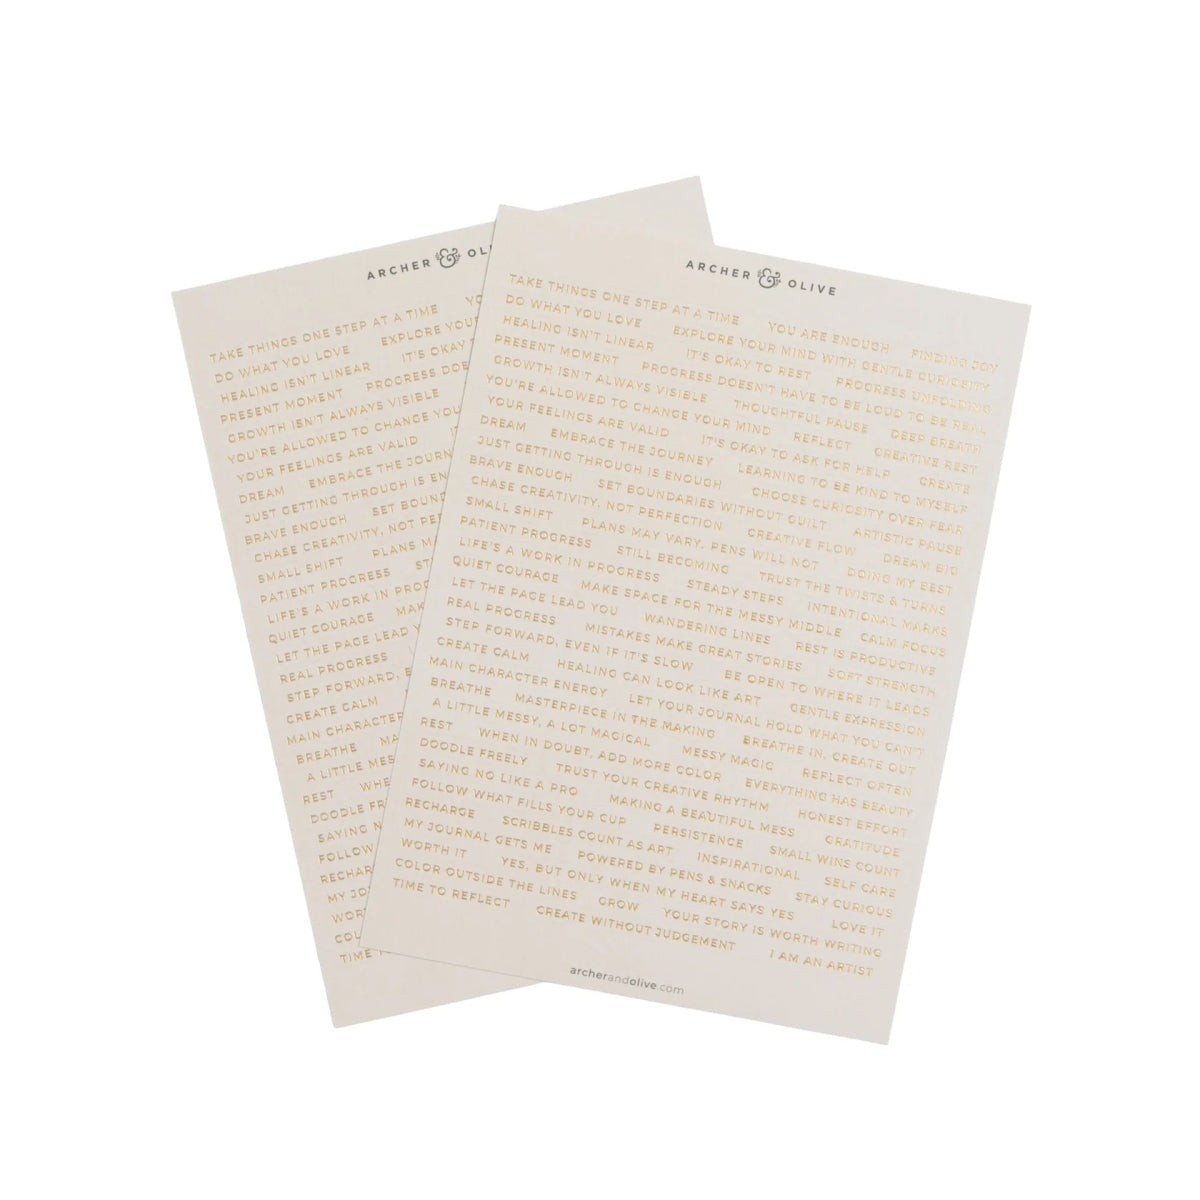 ARCHER & OL
TAKE THINGS ONE STEP AT A TIME YO
DO WHAT YOU LOVE EXPLORE YOUR
HEALING ISN'T LINEAR IT'S OKAY T
PRESENT MOMENT PROGRESS DOES
GROWTH ISN'T ALWAYS VISIBLE
YOU'RE ALLOWED TO CHANGE YOU
YOUR FEELINGS ARE VALID
DREAM EMBRACE THE JOURN
JUST GETTING THROUGH IS EN
BRAVE ENOUGH SET BOUND
CHASE CREATIVITY, NOT PERF
SMALL SHIFT PLANS M
PATIENT PROGRESS ST
LIFE'S A WORK IN PROG
QUIET COURAGE MAK
LET THE PAGE LEAD Y
REAL PROGRESS
STEP FORWARD, E
CREATE CALM
MAIN CHARACTER
BREATHE MA
A LITTLE MES
REST WHE
DOODLE FR
SAYING N
FOLLOW
RECHAR
MY JO
WOR
COL
TIME T
ARCHER & OLIVE
TAKE THINGS ONE STEP AT A TIME YOU ARE ENOUGH FINDING JOY
DO WHAT YOU LOVE EXPLORE YOUR MIND WITH GENTLE CURIOSITY
HEALING ISN'T LINEAR IT'S OKAY TO REST PROGRESS UNFOLDING
PRESENT MOMENT PROGRESS DOESN'T HAVE TO BE LOUD TO BE REAL
GROWTH ISN'T ALWAYS VISIBLE THOUGHTFUL PAUSE DEEP BREATH
YOU'RE ALLOWED TO CHANGE YOUR MIND REFLECT CREATIVE REST
YOUR FEELINGS ARE VALID IT'S OKAY TO ASK FOR HELP CREATE
DREAM EMBRACE THE JOURNEY LEARNING TO BE KIND TO MYSELF
JUST GETTING THROUGH IS ENOUGH CHOOSE CURIOSITY OVER FEAR
BRAVE ENOUGH SET BOUNDARIES WITHOUT GUILT ARTISTIC PAUSE
CHASE CREATIVITY, NOT PERFECTION CREATIVE FLOW DREAM BIG
SMALL SHIFT PLANS MAY VARY, PENS WILL NOT DOING MY BEST
PATIENT PROGRESS STILL BECOMING TRUST THE TWISTS & TURNS
LIFE'S A WORK IN PROGRESS STEADY STEPS INTENTIONAL MARKS
QUIET COURAGE MAKE SPACE FOR THE MESSY MIDDLE CALM FOCUS
LET THE PAGE LEAD YOU WANDERING LINES REST IS PRODUCTIVE
REAL PROGRESS MISTAKES MAKE GREAT STORIES SOFT STRENGTH
STEP FORWARD, EVEN IF IT'S SLOW BE OPEN TO WHERE IT LEADS
CREATE CALM HEALING CAN LOOK LIKE ART GENTLE EXPRESSION
MAIN CHARACTER ENERGY LET YOUR JOURNAL HOLD WHAT YOU CAN'T
BREATHE MASTERPIECE IN THE MAKING BREATHE IN, CREATE OUT
A LITTLE MESSY, A LOT MAGICAL MESSY MAGIC REFLECT OFTEN
REST WHEN IN DOUBT, ADD MORE COLOR EVERYTHING HAS BEAUTY
DOODLE FREELY TRUST YOUR CREATIVE RHYTHM HONEST EFFORT
SAYING NO LIKE A PRO MAKING A BEAUTIFUL MESS GRATITUDE
FOLLOW WHAT FILLS YOUR CUP PERSISTENCE SMALL WINS COUNT
RECHARGE SCRIBBLES COUNT AS ART INSPIRATIONAL SELF CARE
MY JOURNAL GETS ME POWERED BY PENS & SNACKS STAY CURIOUS
WORTH IT YES, BUT ONLY WHEN MY HEART SAYS YES LOVE IT
COLOR OUTSIDE THE LINES GROW YOUR STORY IS WORTH WRITING
TIME TO REFLECT CREATE WITHOUT JUDGEMENT I AM AN ARTIST
archerandolive.com